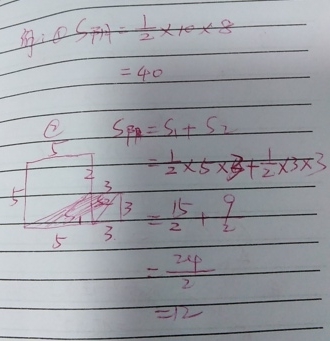 解:① S阴=1/2×10×8
=40
② S阴=S₁+S₂
=1/2×5×3+1/2×3×3
=15/2+9/2
=24/2
=12
5
2
5
3
S₁
S₂
3
5
3